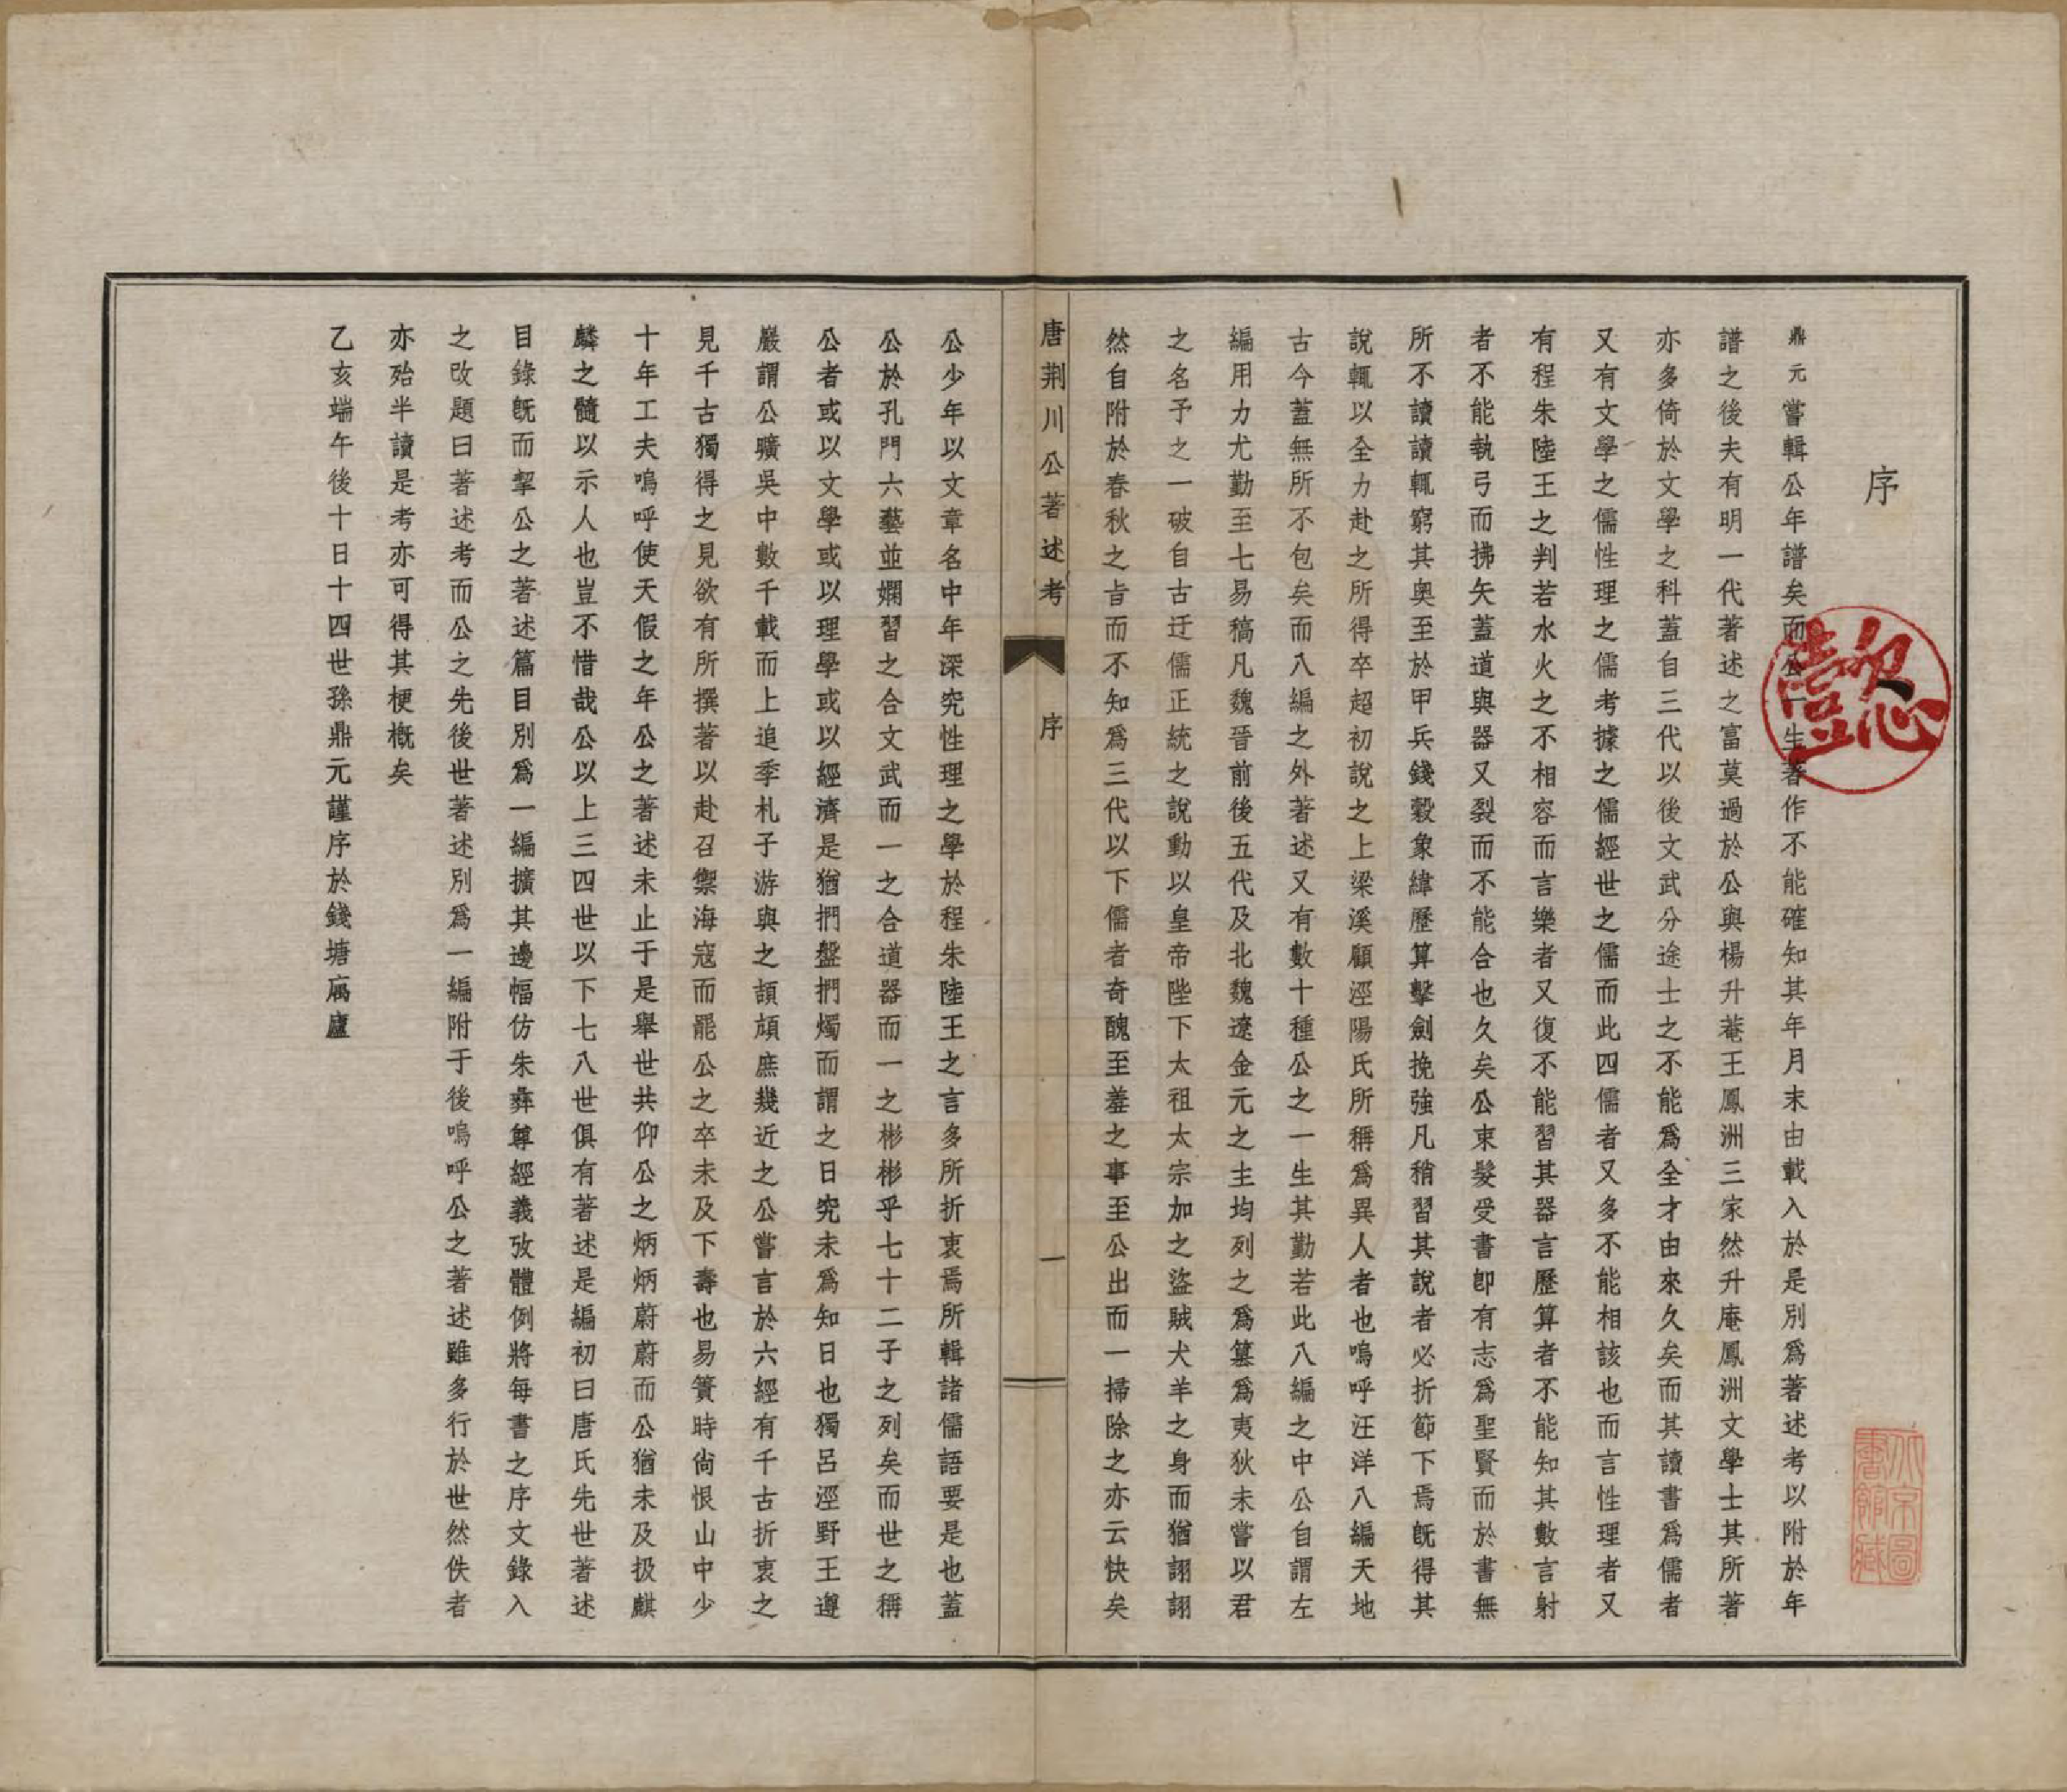 序
鼎元嘗輯公年譜矣而公一生著作不能確知其年月末由載入於是別爲著述考以附於年
譜之後夫有明一代著述之富莫過於公與楊升菴王鳳洲三家然升庵鳳洲文學士其所著
亦多倚於文學之科蓋自三代以後文武分途士之不能爲全才由來久矣而其讀書爲儒者
又有文學之儒性理之儒考據之儒經世之儒而此四儒者又多不能相該也而言性理者又
有程朱陸王之判若水火之不相容而言樂者又復不能習其器言歷算者不能知其數言射
者不能執弓而拂矢蓋道與器又裂而不能合也久矣公束髮受書卽有志爲聖賢而於書無
所不讀讀輒窮其奧至於甲兵錢穀象緯歷算擊劍挽強凡稍習其說者必折節下焉旣得其
說輒以全力赴之所得卒超初說之上梁溪顧涇陽氏所稱爲異人者也嗚呼汪洋八編天地
古今蓋無所不包矣而八編之外著述又有數十種公之一生其勤若此八編之中公自謂左
編用力尤勤至七易稿凡魏晉前後五代及北魏遼金元之主均列之爲簒爲夷狄未嘗以君
之名予之一破自古迂儒正統之說動以皇帝陛下太祖太宗加之盜賊犬羊之身而猶詡詡
然自附於春秋之旨而不知爲三代以下儒者奇醜至羞之事至公出而一掃除之亦云快矣
唐荆川公著述考
序
一
公少年以文章名中年深究性理之學於程朱陸王之言多所折衷焉所輯諸儒語要是也蓋
公於孔門六藝並嫻習之合文武而一之合道器而一之彬彬乎七十二子之列矣而世之稱
公者或以文學或以理學或以經濟是猶捫盤捫燭而謂之日究未爲知日也獨呂涇野王遵
巖謂公曠吳中數千載而上追季札子游與之頡頏庶幾近之公嘗言於六經有千古折衷之
見千古獨得之見欲有所撰著以赴召禦海寇而罷公之卒未及下壽也易簀時尙恨山中少
十年工夫嗚呼使天假之年公之著述未止于是舉世共仰公之炳炳蔚蔚而公猶未及扱麒
麟之髓以示人也豈不惜哉公以上三四世以下七八世俱有著述是編初曰唐氏先世著述
目錄旣而挈公之著述篇目別爲一編擴其邊幅仿朱彝尊經義攷體例將每書之序文錄入
之改題曰著述考而公之先後世著述別爲一編附于後嗚呼公之著述雖多行於世然佚者
亦殆半讀是考亦可得其梗槪矣
乙亥端午後十日十四世孫鼎元謹序於錢塘寓廬